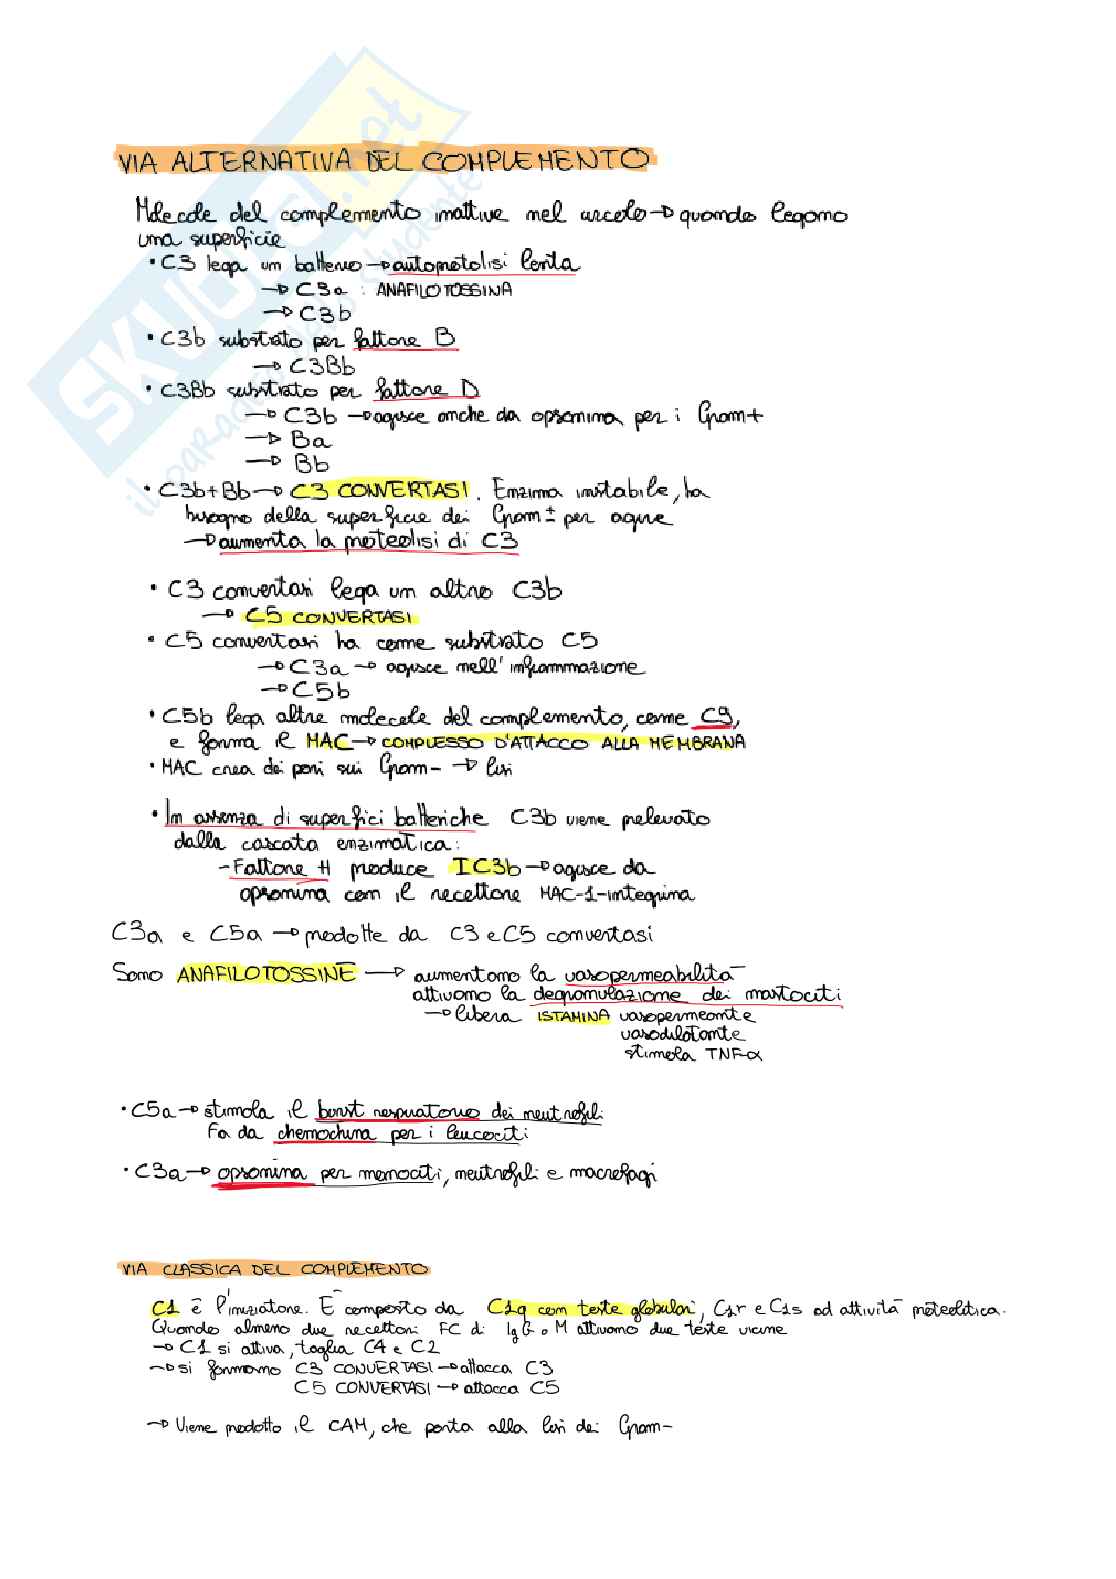 SKUOLA.net
il paradiso dello studente
VIA ALTERNATIVA DEL COMPLEMENTO
Molecole del complemento inattive nel circolo → quando legano
una superficie
• C3 lega un batterio → autoproteolisi lenta
→ C3a : ANAFILOTOSSINA
→ C3b
• C3b substrato per fattore B
→ C3Bb
• C3Bb substrato per fattore D
→ C3b → agisce anche da opsonina per i Gram+
→ Ba
→ Bb
• C3b+Bb → C3 CONVERTASI. Enzima instabile, ha
bisogno della superficie dei Gram± per agire
→ aumenta la proteolisi di C3
• C3 convertasi lega un altro C3b
→ C5 CONVERTASI
• C5 convertasi ha come substrato C5
→ C3a → agisce nell'infiammazione
→ C5b
• C5b lega altre molecole del complemento, come C9,
e forma il MAC → COMPLESSO D'ATTACCO ALLA MEMBRANA
• MAC crea dei pori sui Gram- → lisi
• In assenza di superfici batteriche C3b viene prelevato
dalla cascata enzimatica:
- Fattore H produce IC3b → agisce da
opsonina con il recettore MAC-1-integrina
C3a e C5a → prodotte da C3 e C5 convertasi
Sono ANAFILOTOSSINE → aumentano la vasopermeabilità
attivano la degranulazione dei mastociti
→ libera ISTAMINA vasopermeante
vasodilatante
stimola TNF-α
• C5a → stimola il burst respiratorio dei neutrofili
Fa da chemochina per i leucociti
• C3a → opsonina per monociti, neutrofili e macrofagi
VIA CLASSICA DEL COMPLEMENTO
C1 è l'iniziatore. È composto da C1q con teste globulari, C1r e C1s ad attività proteolitica.
Quando almeno due recettori FC di IgG o M attivano due teste vicine
→ C1 si attiva, taglia C4 e C2
→ si formano C3 CONVERTASI → attacca C3
C5 CONVERTASI → attacca C5
→ Viene prodotto il CAM, che porta alla lisi dei Gram-